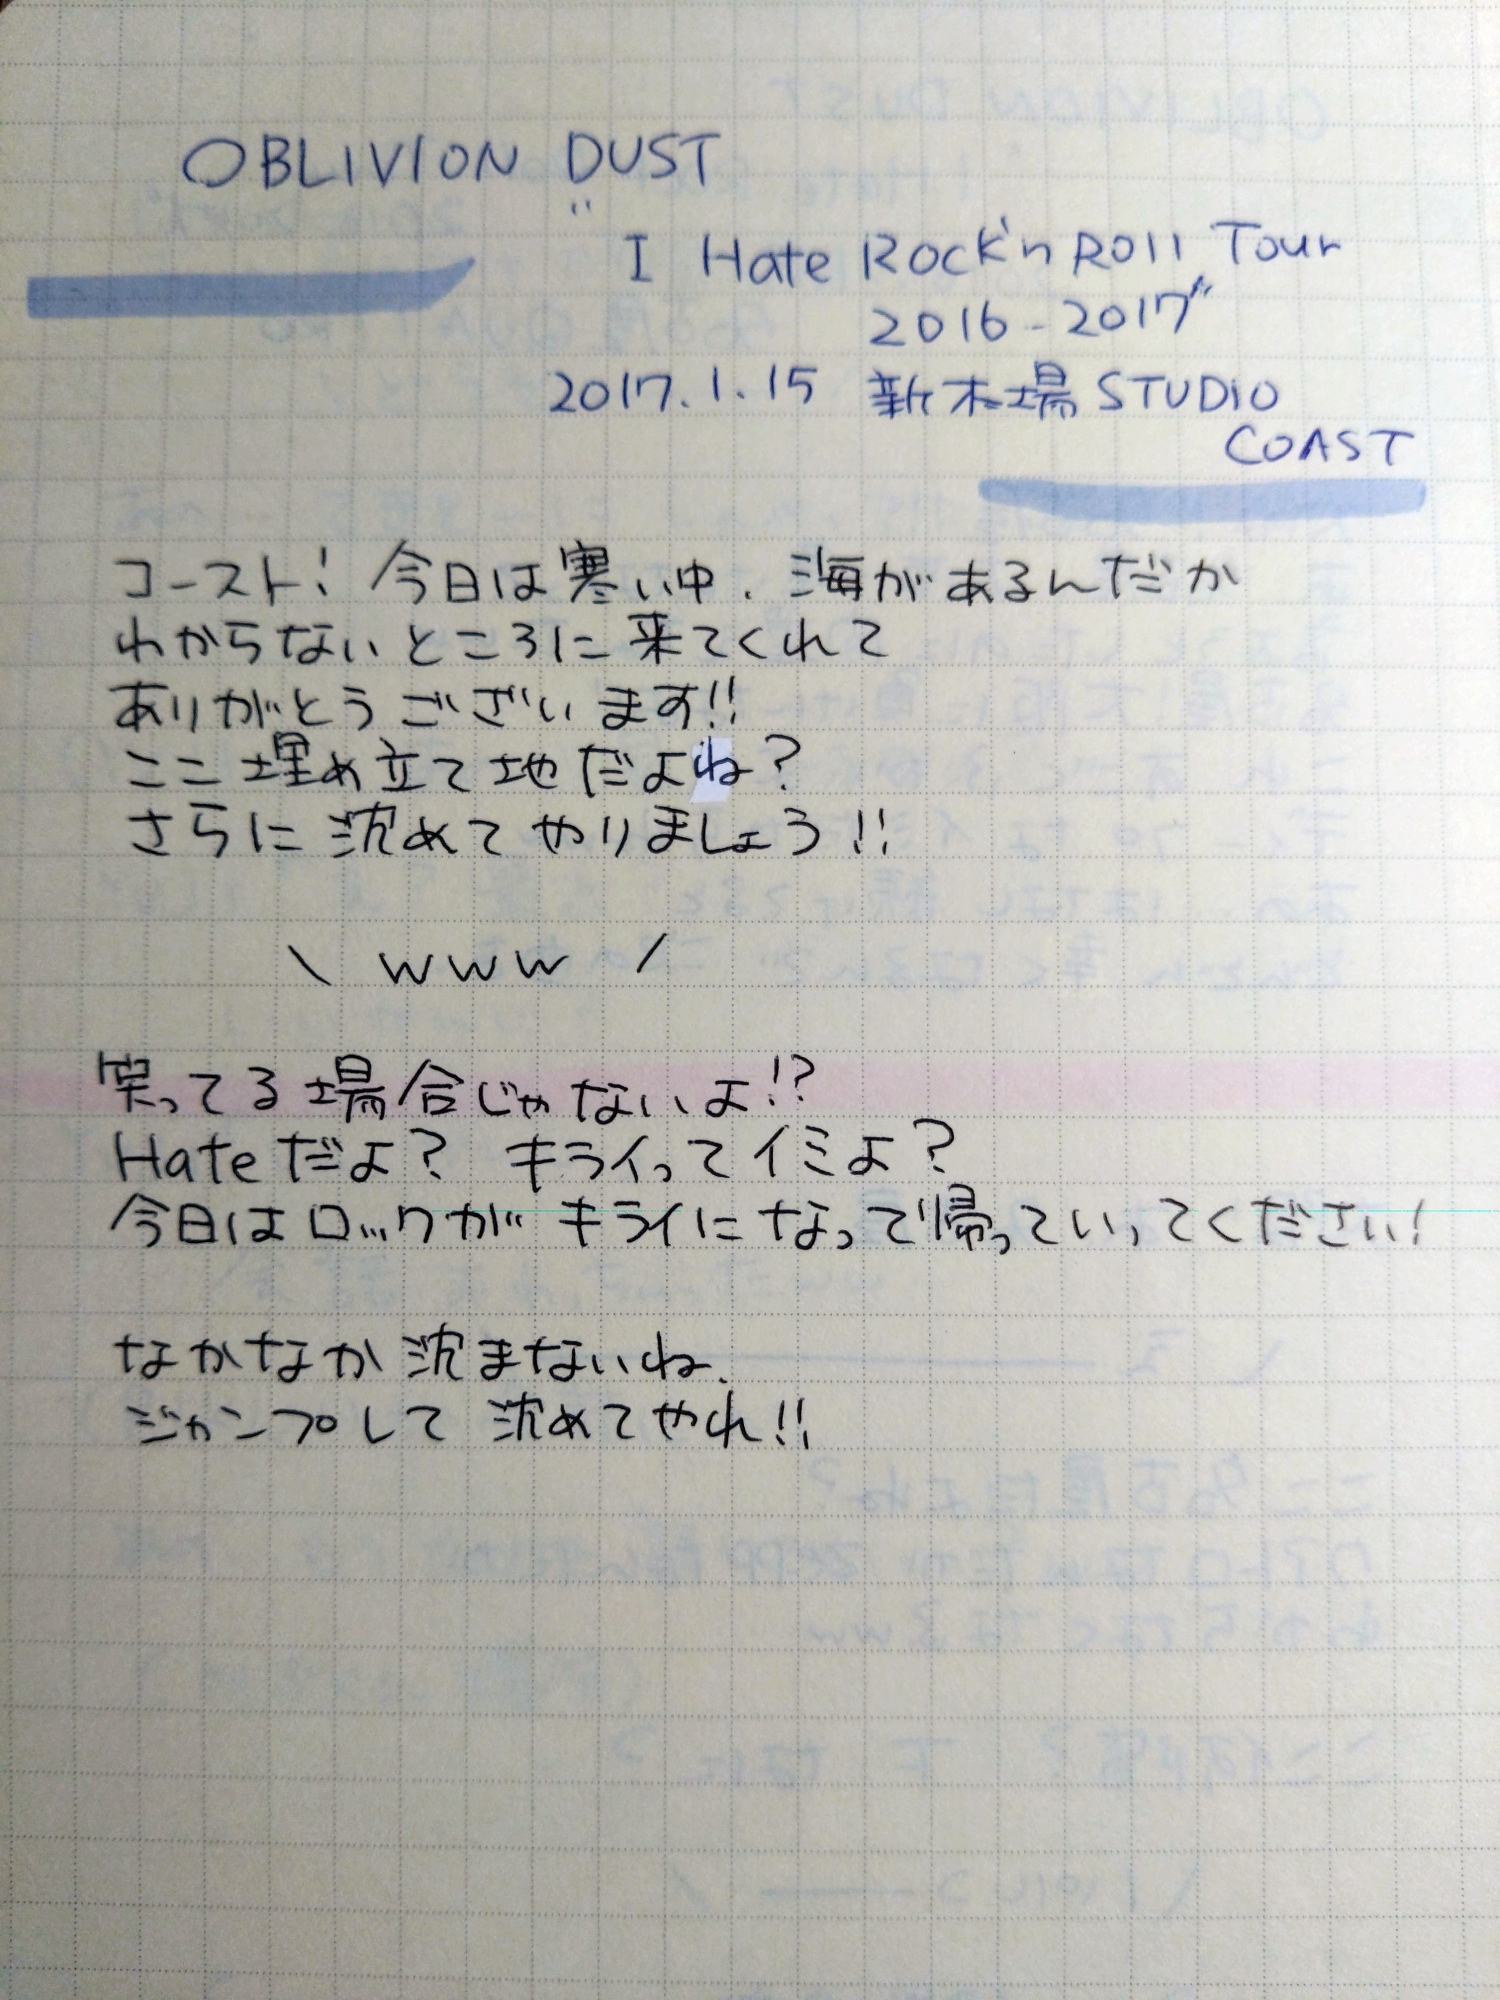 OBLIVION DUST
"I Hate Rock'n Roll Tour
2016-2017"
2017.1.15 新木場 STUDIO
COAST
コースト! 今日は寒い中、海があるんだか
わからないところに来てくれて
ありがとうございます!!
ここ埋め立て地だよね?
さらに沈めてやりましょう!!
\ www /
笑ってる場合じゃないよ!?
Hateだよ? キライってイミよ?
今日はロックがキライになって帰っていってください!
なかなか沈まないね、
ジャンプして沈めてやれ!!